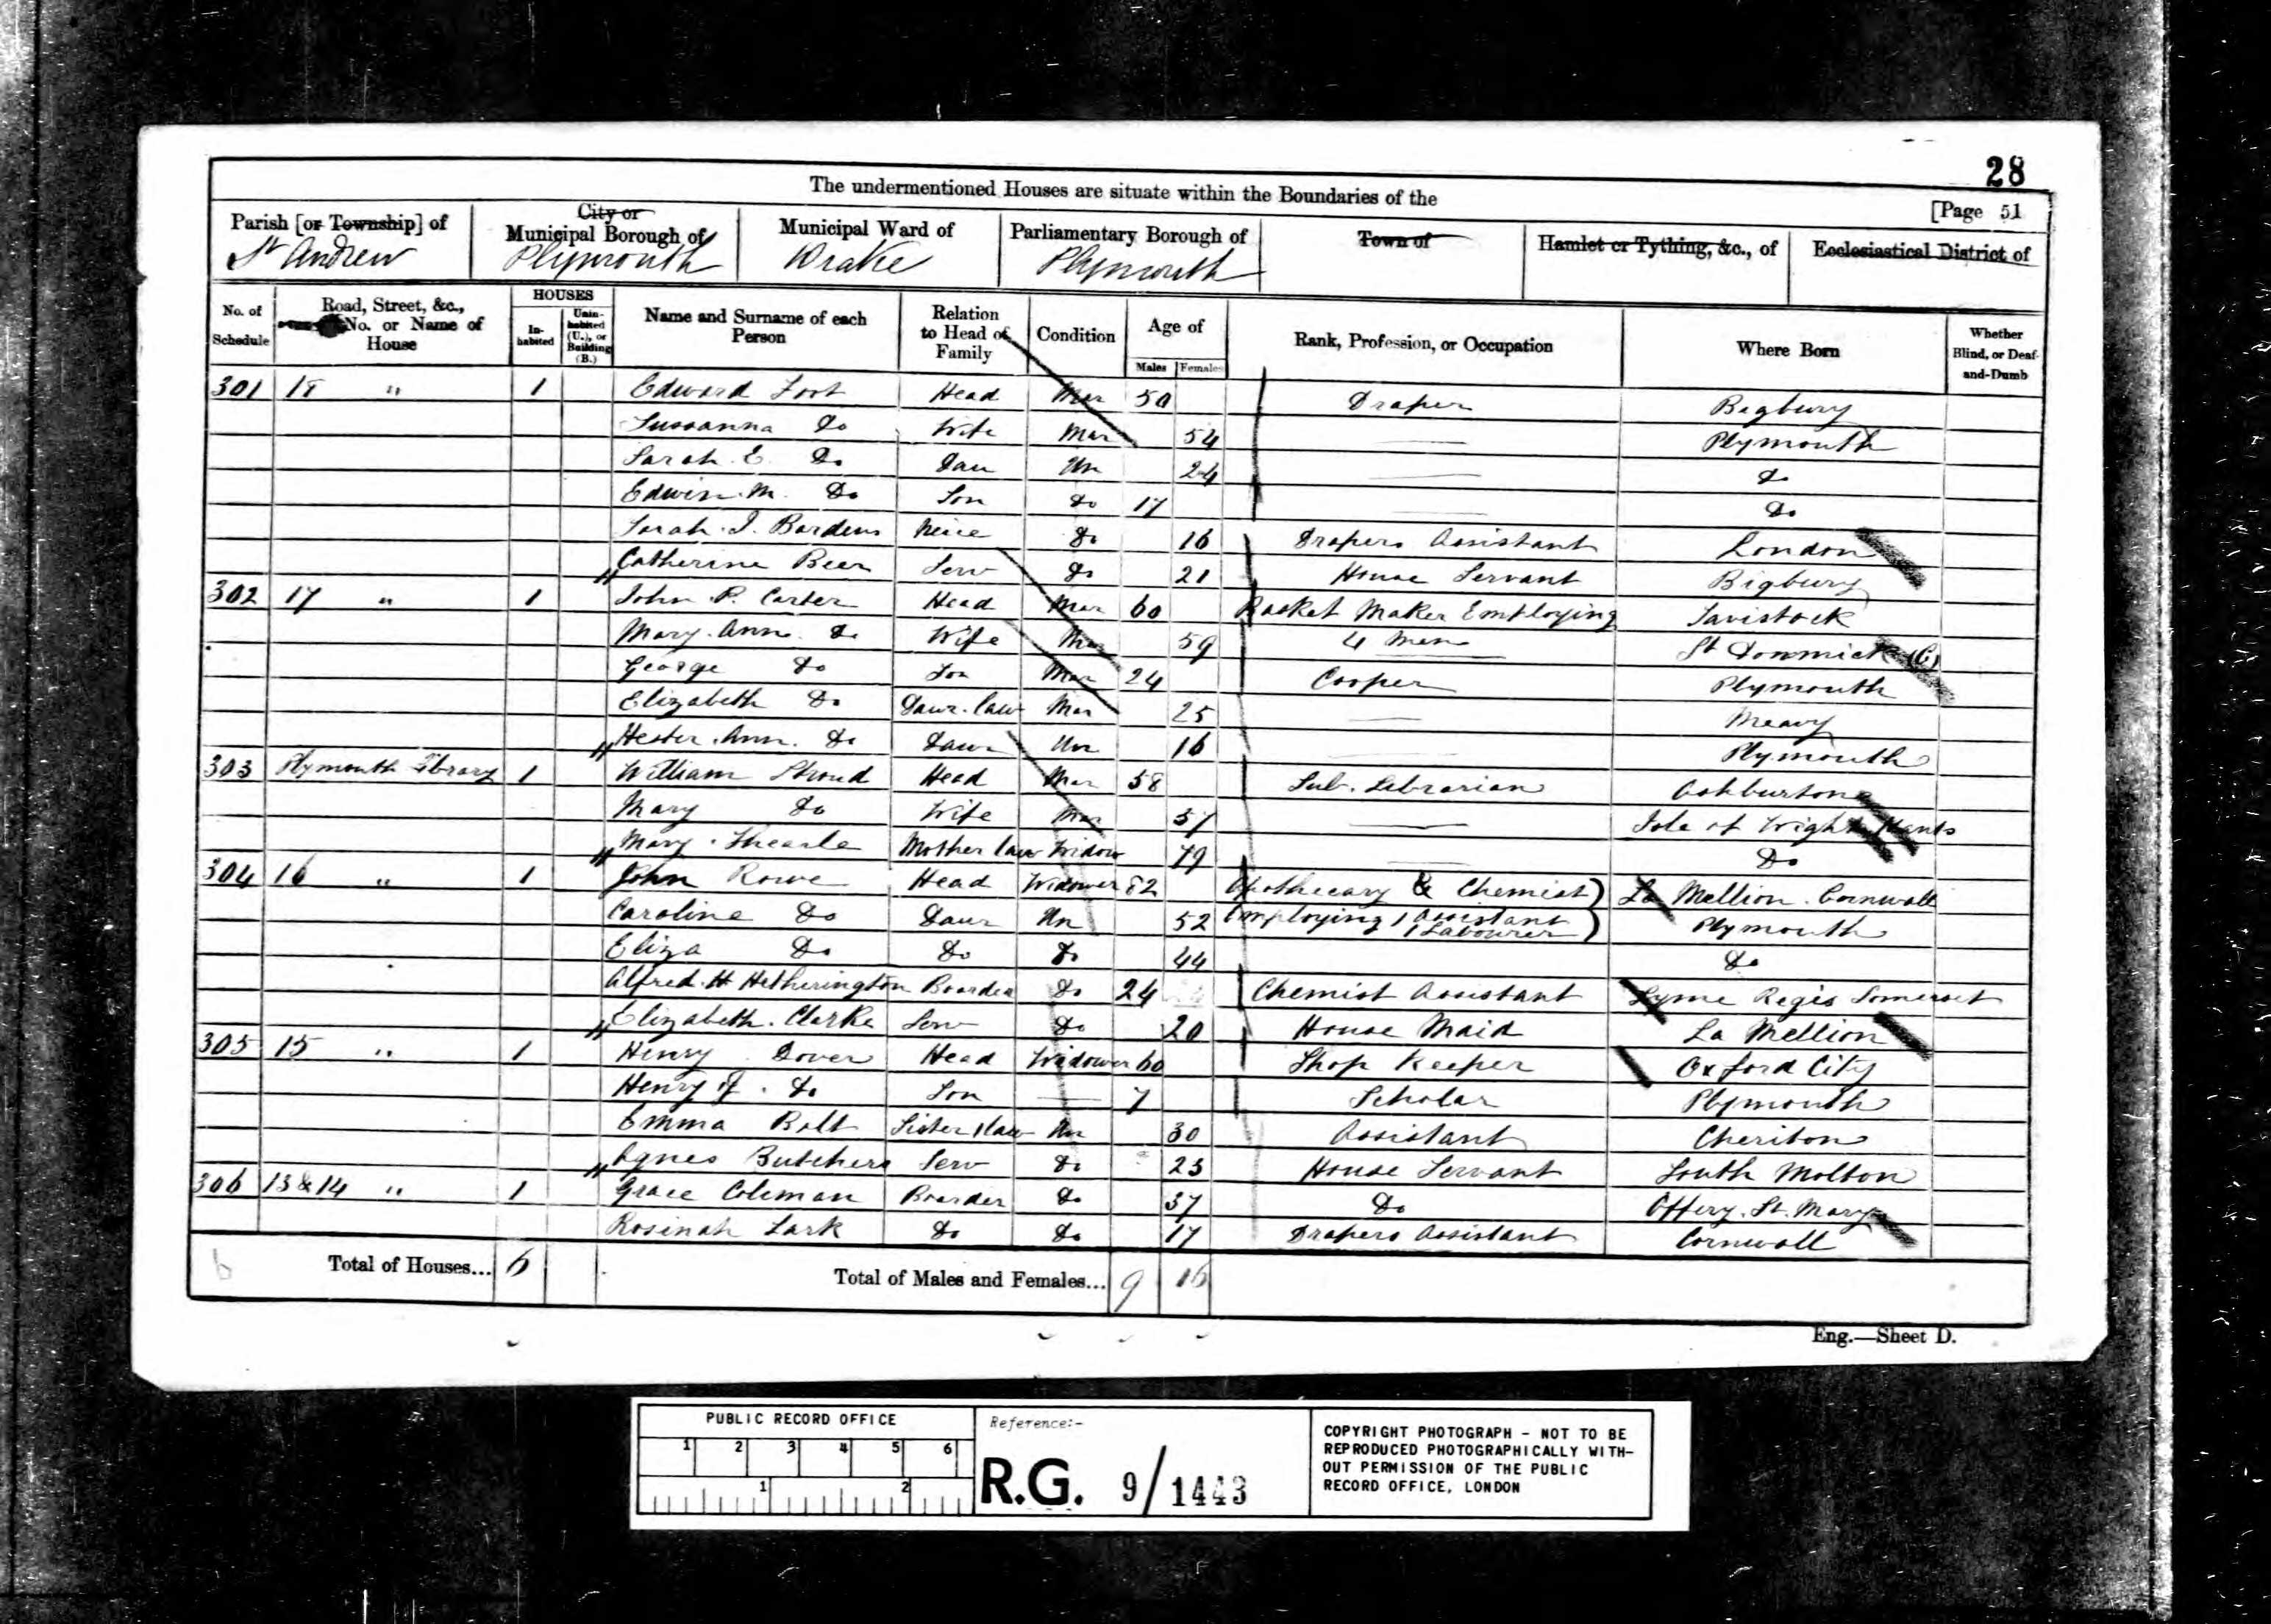 28
The undermentioned Houses are situate within the Boundaries of the
[Page 51
Parish [or Township] of St Andrew
City or Municipal Borough of Plymouth
Municipal Ward of Drake
Parliamentary Borough of Plymouth
Town of
Hamlet or Tything, &c., of
Ecclesiastical District of
No. of Schedule
Road, Street, &c., No. or Name of House
HOUSES
In-habited
Unin-habited (U.), or Building (B.)
Name and Surname of each Person
Relation to Head of Family
Condition
Age of
Males Females
Rank, Profession, or Occupation
Where Born
Whether Blind, or Deaf-and-Dumb
301 18 " 1 Edward Foot Head Mar 50 Draper Bigbury
Sussanna Do Wife Mar 54 Plymouth
Sarah E. Do Dau Un 24 Do
Edwin M. Do Son Do 17 Do
Sarah J. Bardens Neice Do 16 Drapers Assistant London
Catherine Beer Serv Do 21 House Servant Bigbury
302 17 " 1 John P. Carter Head Mar 60 Basket Maker Employing Tavistock
Mary Ann Do Wife Mar 59 4 Men St Donmick (C)
George Do Son Mar 24 Cooper Plymouth
Elizabeth Do Daur law Mar 25 Meavy
Hester Ann Do Daur Un 16 Plymouth
303 Plymouth Library 1 William Stroud Head Mar 58 Sub. Librarian Ashburton
Mary Do Wife Mar 57 Isle of Wight Hants
Mary Thearle Mother law Widow 79 Do
304 16 " 1 John Rowe Head Widower 82 Apothecary & Chemist) La Mellion. Cornwall
Caroline Do Daur Un 52 Employing 1 Assistant 1 Labourer) Plymouth
Eliza Do Do Do 44 Do
Alfred H Hetherington Boarder Do 24 Chemist Assistant Lyme Regis Somerset
Elizabeth Clarke Serv Do 20 House Maid La Mellion
305 15 " 1 Henry Dover Head Widower 60 Shop Keeper Oxford City
Henry Do Son 7 Scholar Plymouth
Emma Bolt Sister law Un 30 Assistant Cheriton
Agnes Butchers Serv Do 23 House Servant South Molton
306 13 & 14 " 1 Grace Coleman Boarder Do 37 Do Offery. St. Mary
Rosinah Lark Do Do 17 Drapers Assistant Cornwall
6 Total of Houses... 6 Total of Males and Females... 9 16
Eng.—Sheet D.
PUBLIC RECORD OFFICE
1 2 3 4 5 6
1 2
Reference:-
R.G. 9/1443
COPYRIGHT PHOTOGRAPH - NOT TO BE
REPRODUCED PHOTOGRAPHICALLY WITH-
OUT PERMISSION OF THE PUBLIC
RECORD OFFICE, LONDON